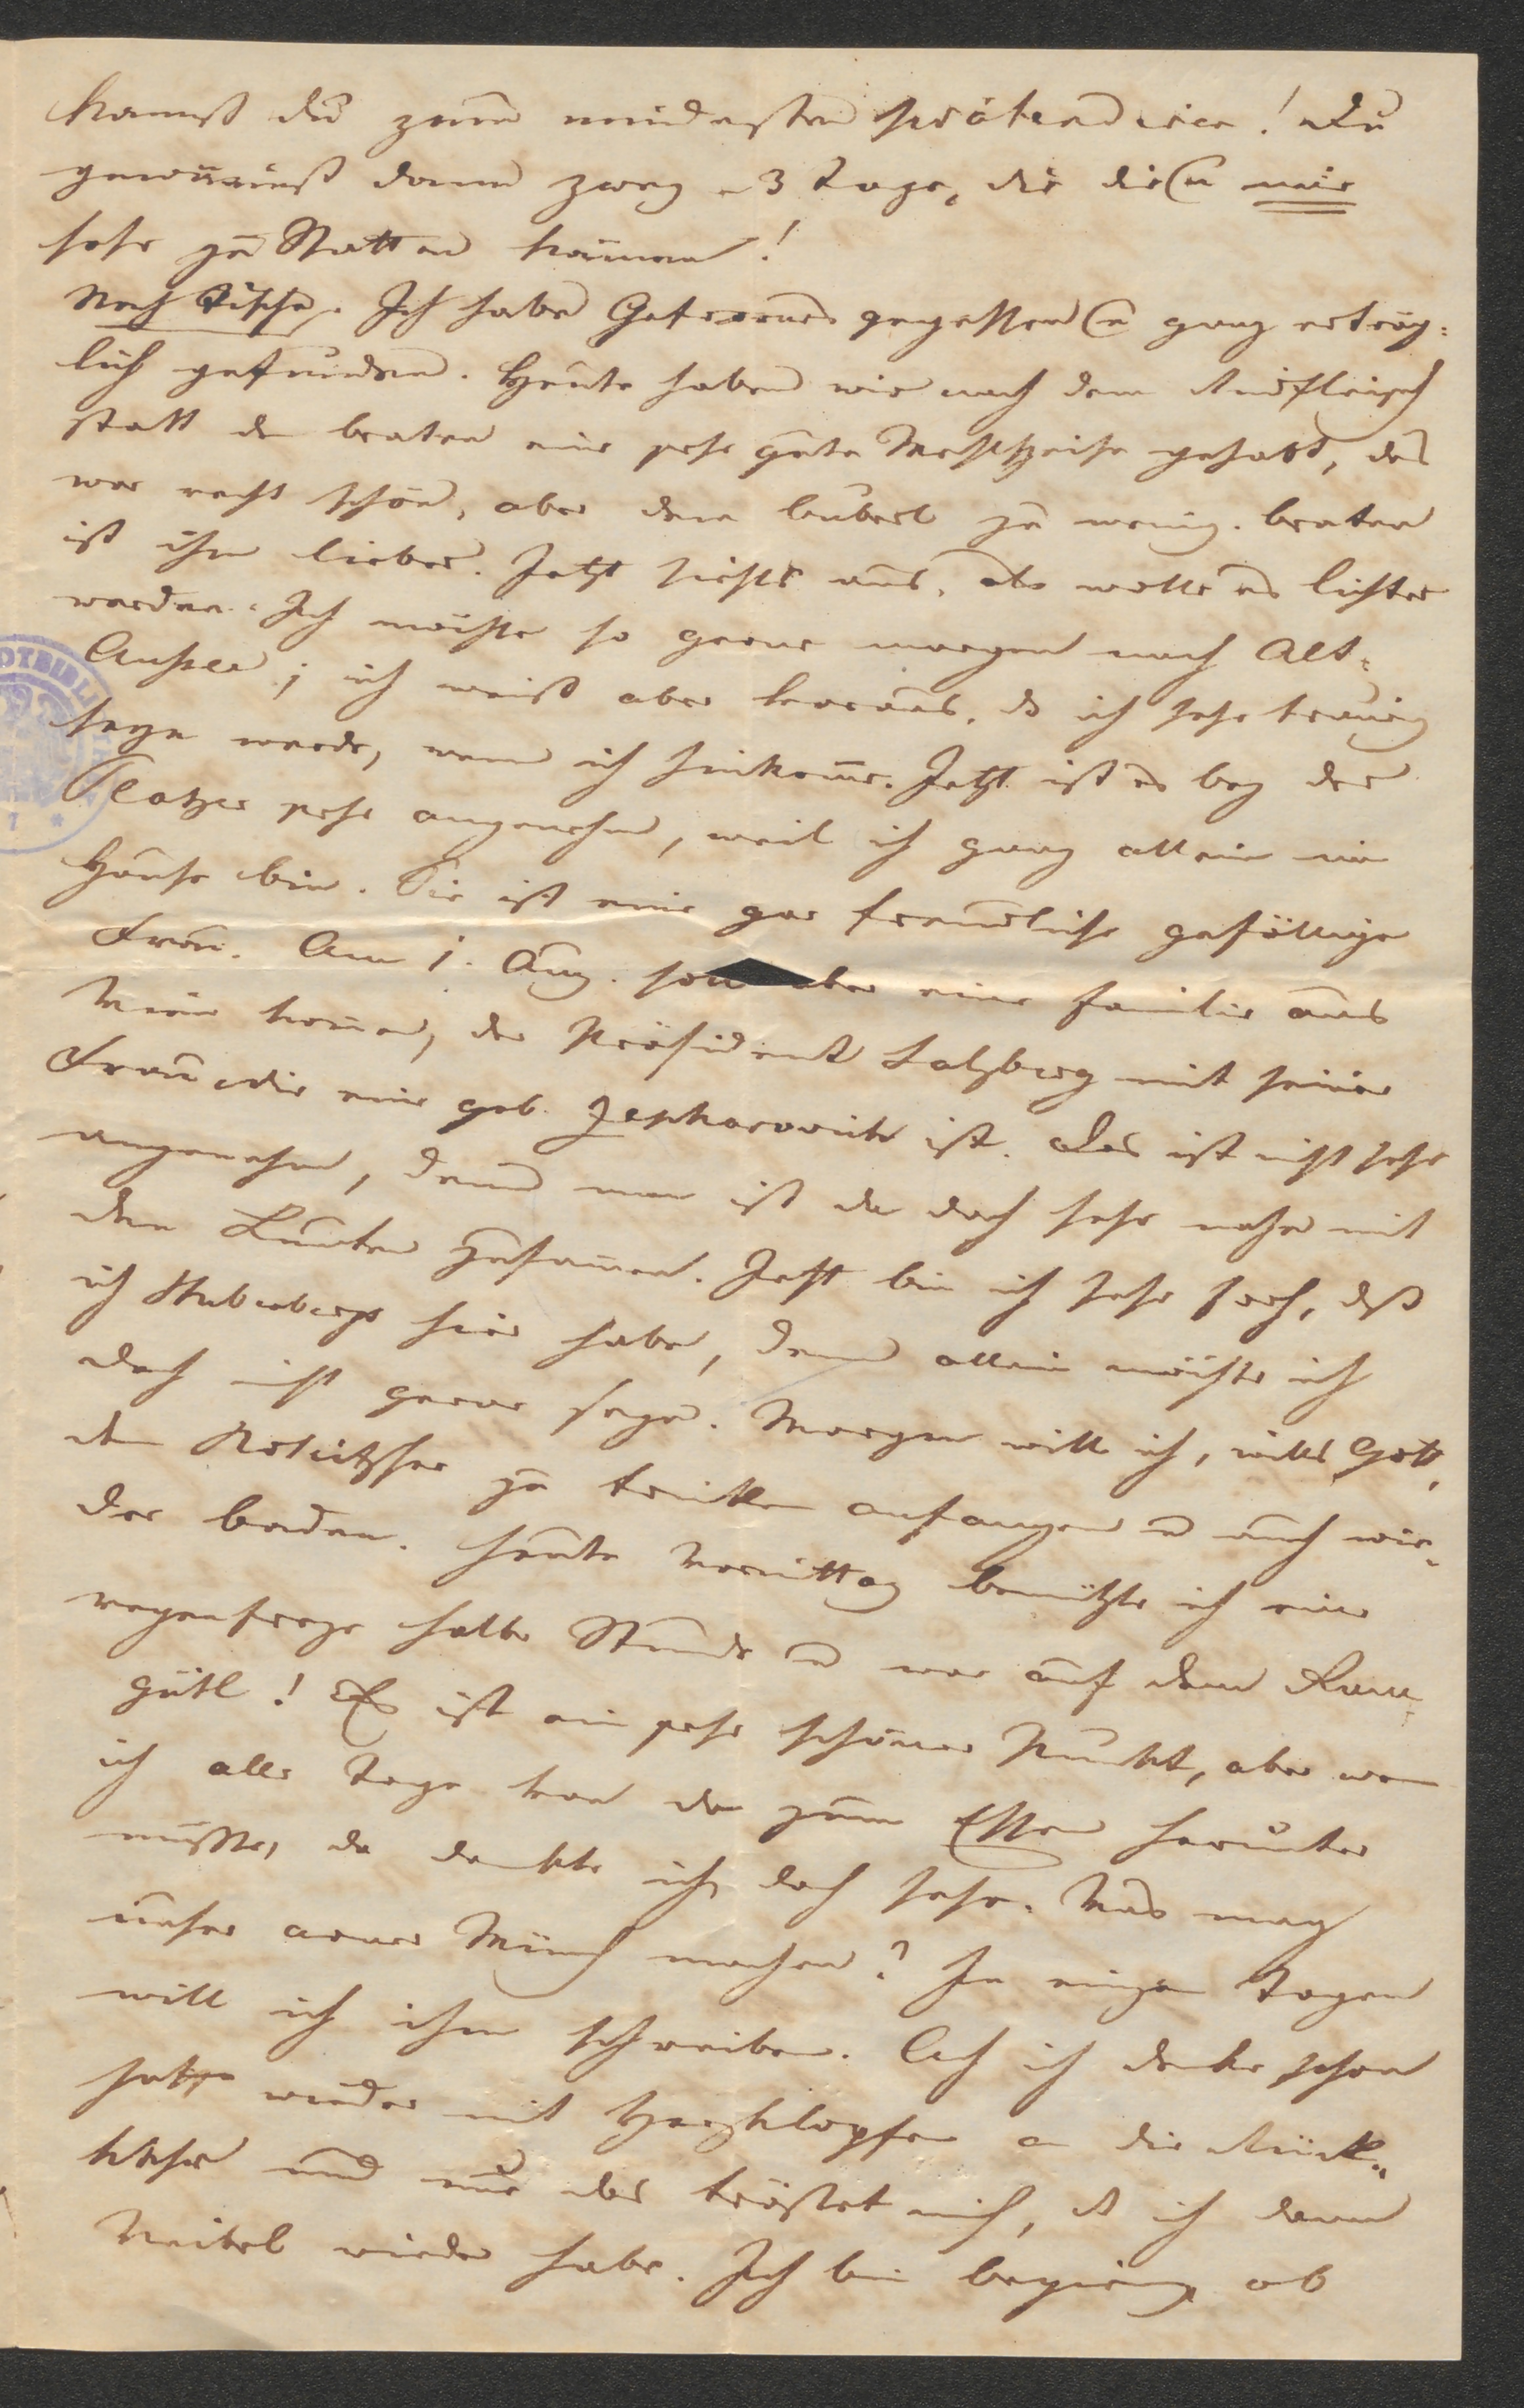 kannst du zum mindesten prätendiren! Du
gewinnest dann zwey – 3 Tage, die dir u mir
sehr zu Statten kommen!
Nach Tische. Ich habe Gefrornes gegessen u ganz erträg=
lich gefunden. Heute haben wir nach dem Rindfleisch
statt de braten eine sehr gute Mehlspeise gehabt, das
war recht schön, aber dem buberl zu wenig. braten
ist ihm lieber. Jetzt siehts aus, als wollte es lichter
werden. Ich möchte so gerne morgen nach Alt=
Aussee; ich weiß aber voraus, dß ich sehr traurig
seyn werde, wenn ich hinkome. Jetzt ist es bey der
Platzer sehr angenehm, weil ich ganz allein im
Hause bin. Sie ist eine gar freundliche gefällige
Frau. Am 1. Aug. soll aber eine Familie aus
Wien komen, der Präsident Salzburg mit seiner
Frau die eine geb. Zepharovich ist. Das ist nicht sehr
angenehm, denn man ist da doch sehr nahe mit
den Leuten zusamen. Jetzt bin ich sehr froh, daß
ich Stubenbergs hier habe, denn allein möchte ich
doch nicht gerne seyn. Morgen will ich, wills Gott,
den Rohitscher zu trinken anfangen u auch wie=
der baden. Heute Vormittag benützte ich eine
regenfreye halbe Stunde u war auf dem Ram
gütl! Es ist ein sehr schöner Punkt, aber wenn
ich alle Tage von da zum Essen herunter
müßte, da dankte ich doch sehr. Was mag
unser armer Münch machen? In einigen Tagen
will ich ihm schreiben. Ach ich denke schon
jetzt wieder mit Herzklopfen an die Rück=
kehr und nur das tröstet mich, dß ich dann
Weiberl wieder habe. Ich bin begierig ob